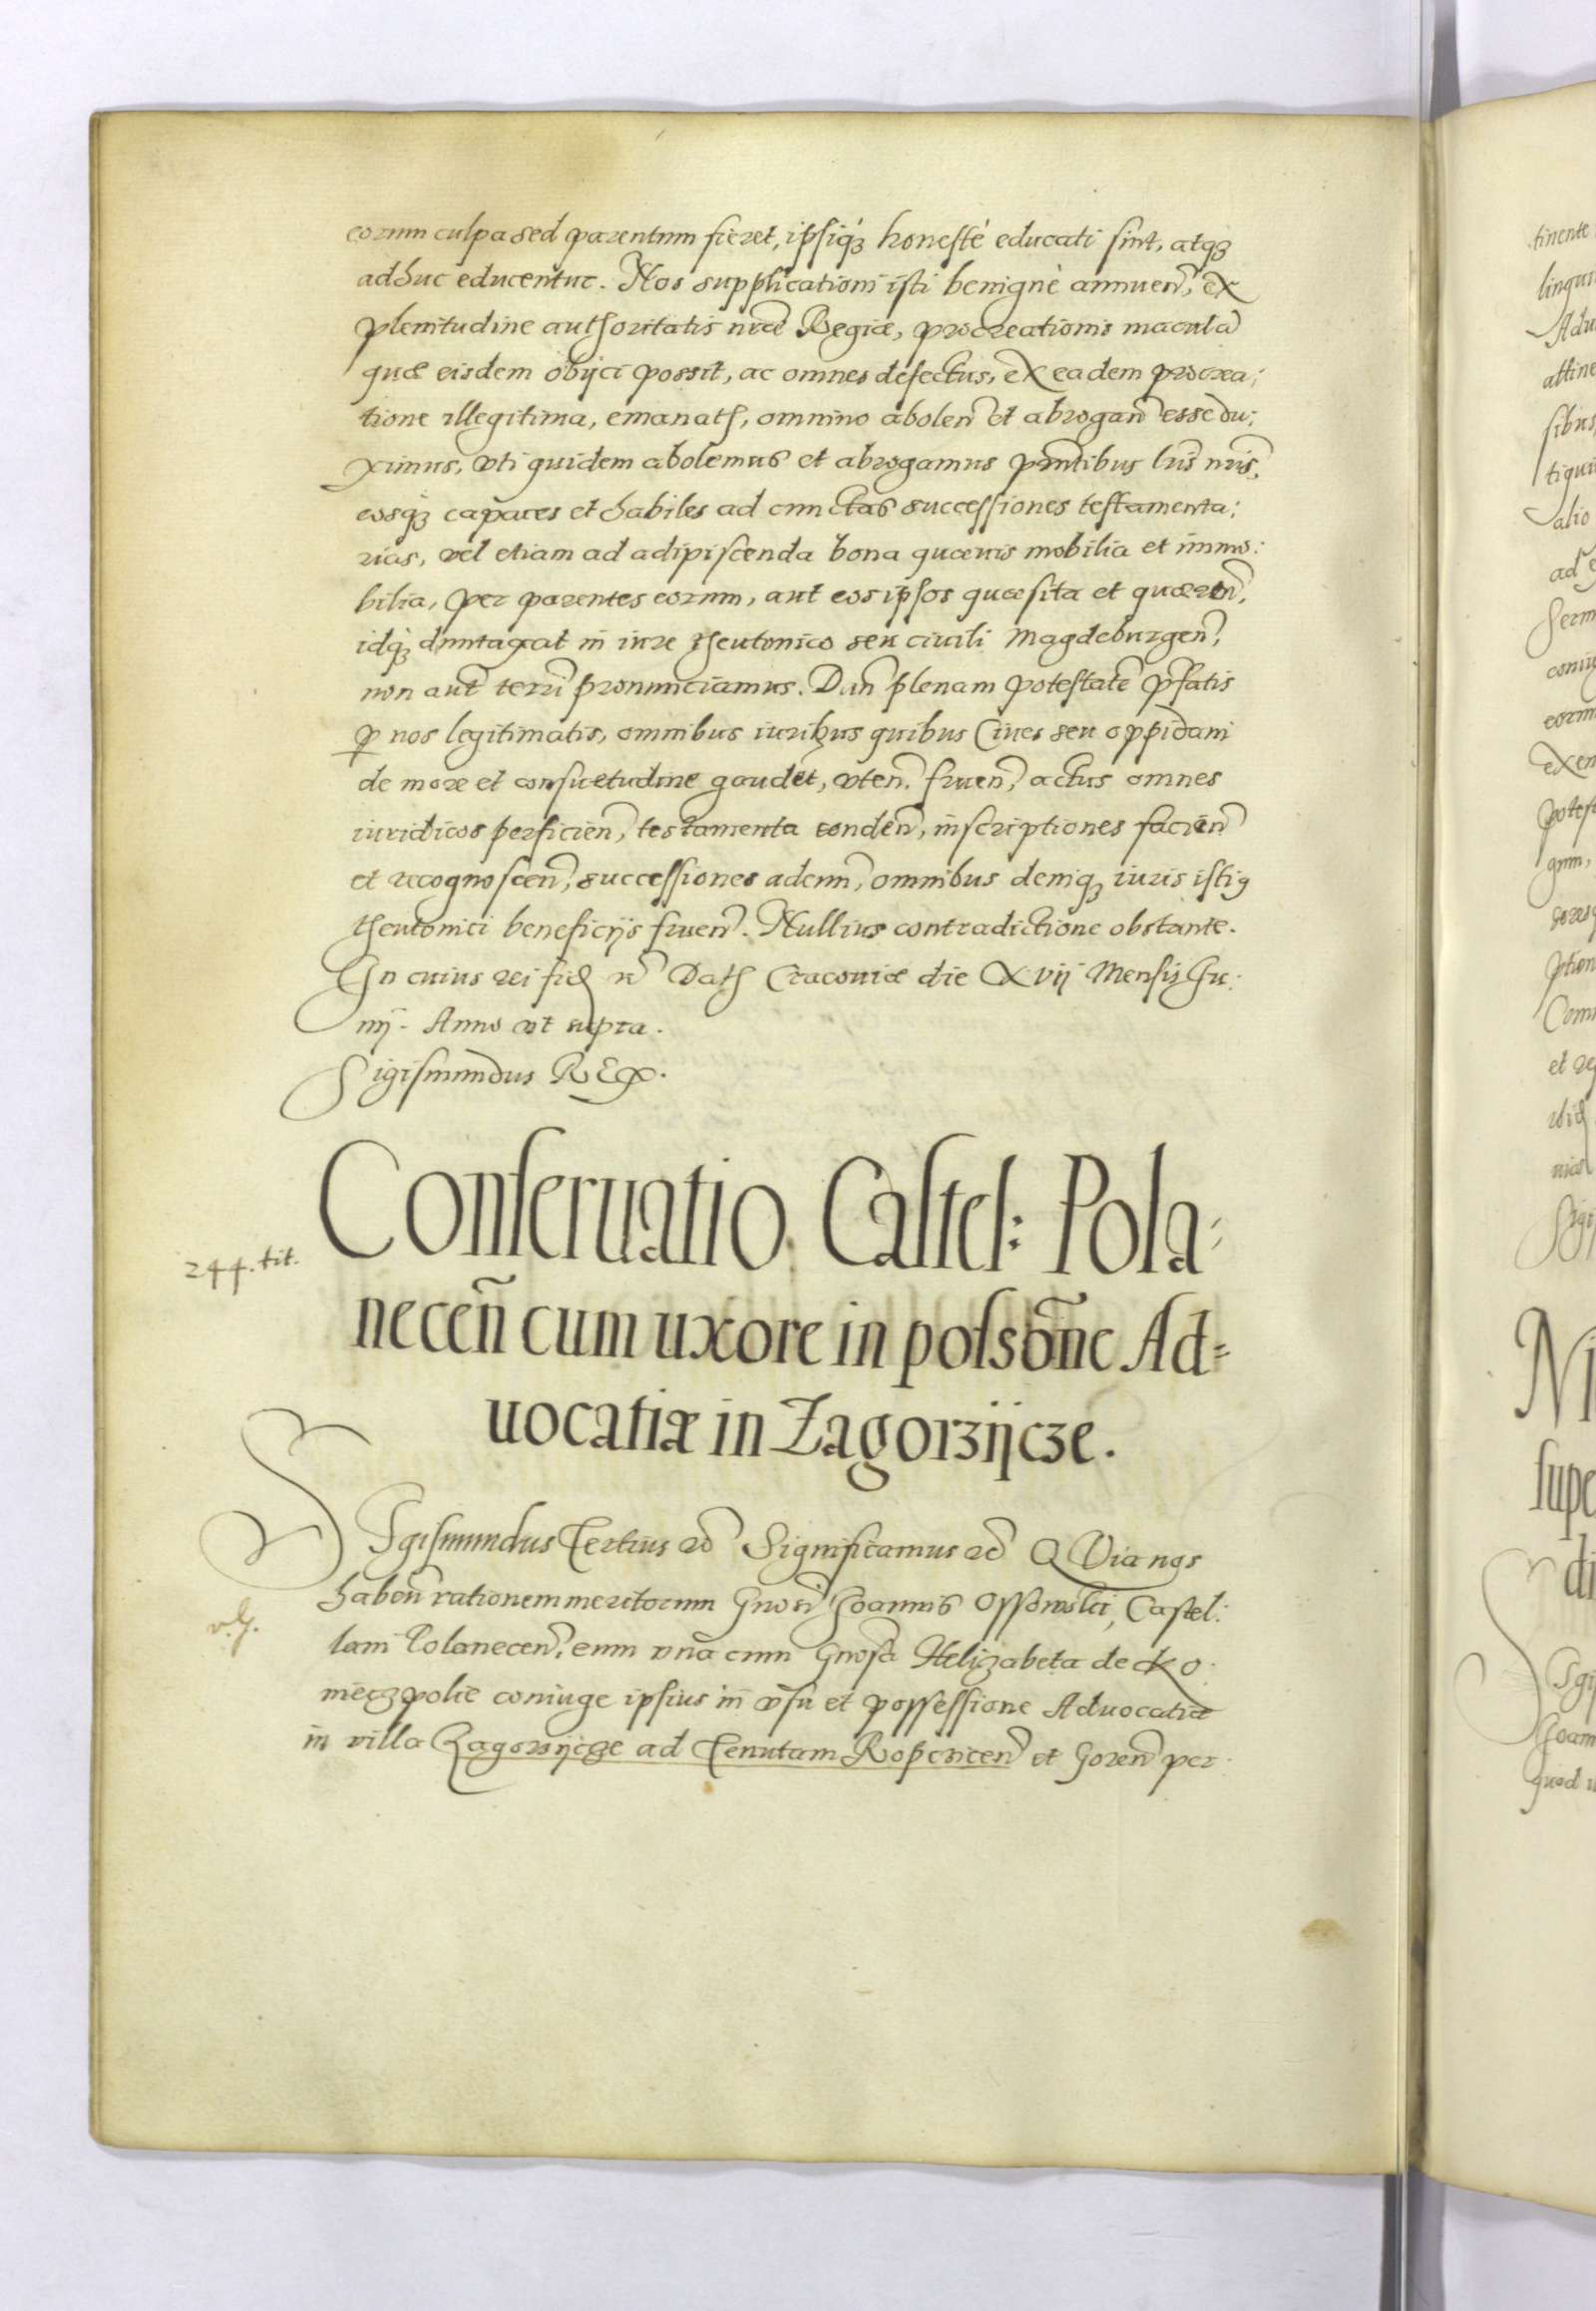 eorum culpa sed parentum fieret, ipsiq́ꝫ honesté educati sint, atqꝫ
adhuc educentur. Nos supplicationi isti benignè annuen̄, ex
plenitudine authoritatis nr̄æ Regiæ, procreationis maculā
quæ eisdem obijci possit, ac omnes defectus, ex eadem procrea:
tione illegitima, emanatꝭ, omnino abolen̄ et abrogan̄ esse du:
ximus, vti quidem abolemus et abrogamus pn̄tibus lr̄is nr̄is,
eosq́ꝫ capaces et habiles ad cunctas successiones testamenta:
rias, vel etiam ad adipiscenda bona quæuis mobilia et immo:
bilia, per parentes eorum, aut eos ipsos quæsita et quæren̄,
idq́ꝫ duntaxat in iure theutonico seu ciuili Magdeburgen̄,
non aūt terr̄i pronunciamus. Dan̄ plenam potestatē p̄fatis
ꝑ nos legitimatis, omnibus iuribus quibus Ciues seu oppidani
de more et consuetudine gaudēt, vten̄. fruen̄, actus omnes
iuridicos perficien̄, testamenta conden̄, inscriptiones facien̄
et recognoscen̄, successiones adeun̄, omnibus deniqꝫ iuris istiꝯ
theutonici beneficijs fruen̄. Nullius contradictione obstante.
In cuius rei fid̄ rc̄ Datꝭ Cracouiæ die Xvij Mensis Iu:
nij. Anno vt supra.
Sigismundus REx.
244. tit.
Conseruatio Castel: Pola:
necen̄ cum uxore in possōne Ad=
uocatiæ in Zagorzijcze.
SIgismundus Tertius rc̄ Significamus rc̄ QVia nos
haben̄ rationem meritorum Gnosi Joannis Ossowski, Castel:
lani Polanecen̄, eum vna cum Gnosa Helizabeta de Ko:
nieczpolie coniuge ipsius in vsu et possessione Aduocatiæ
in villa Zagorzijcze ad Tenutam Ropczicen̄ et Goren̄ per: